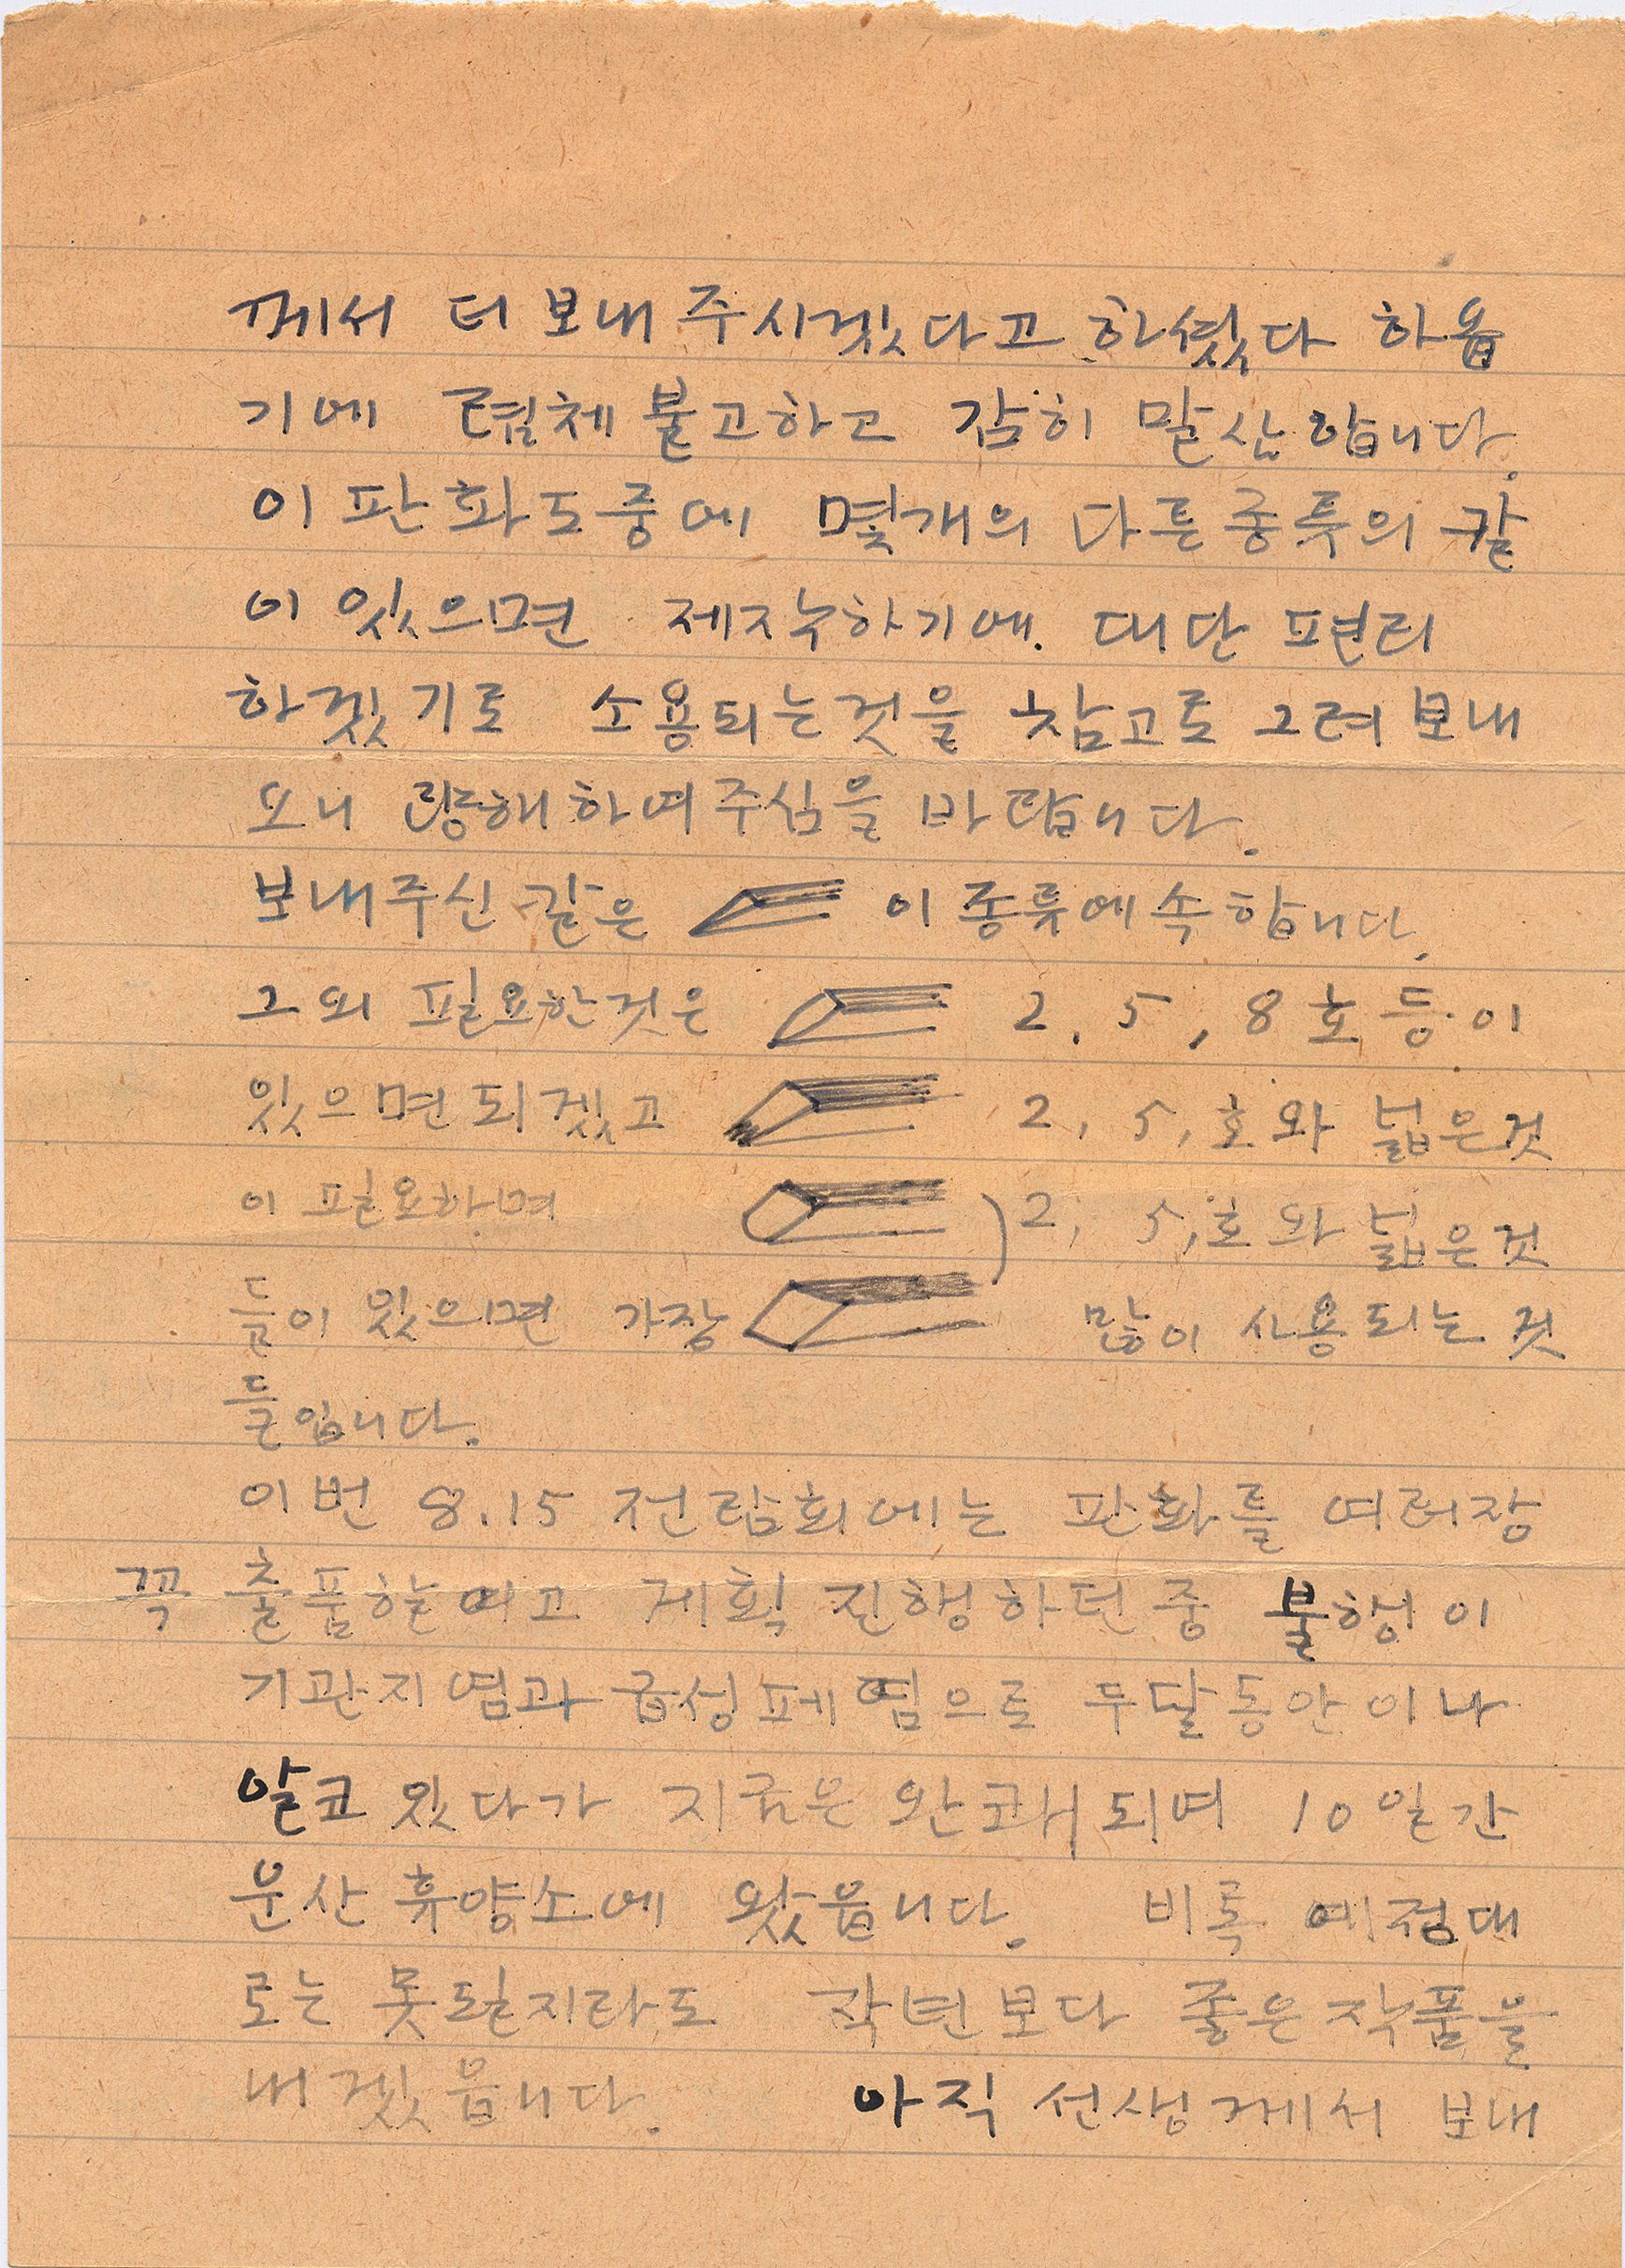 께서 더 보내 주시겠다고 하셨다 하옵
기에 렴체 불고하고 감히 말삼합니다.
이 판화도중에 몇개의 다른 종루의 칼
이 있으면 제작하기에. 대단 편리
하겠기로 소용되는것을 참고로 그려 보내
오니 량해하여주심을 바랍니다.
보내주신 칼은 이 종류에 속합니다.
그 외 필요한것은 2, 5, 8 호 등이
있으면 되겠고 2, 5, 호와 넓은것
이 필요하며 2, 5, 호와 넓은것
들이 있으면 가장 많이 사용되는 것
들입니다.
이번 8.15 전람회에는 판화를 여러장
꼭 출품할여고 게획 진행하던 중 불행이
기관지염과 급성페염으로 두달동안이나
알코 있다가 지금은 완쾌되며 10일간
운산 휴양소에 왔읍니다. 비록 예정대
로는 못될지라도 작년보다 좋은 작품을
내겠읍니다. 아직 선생께서 보내